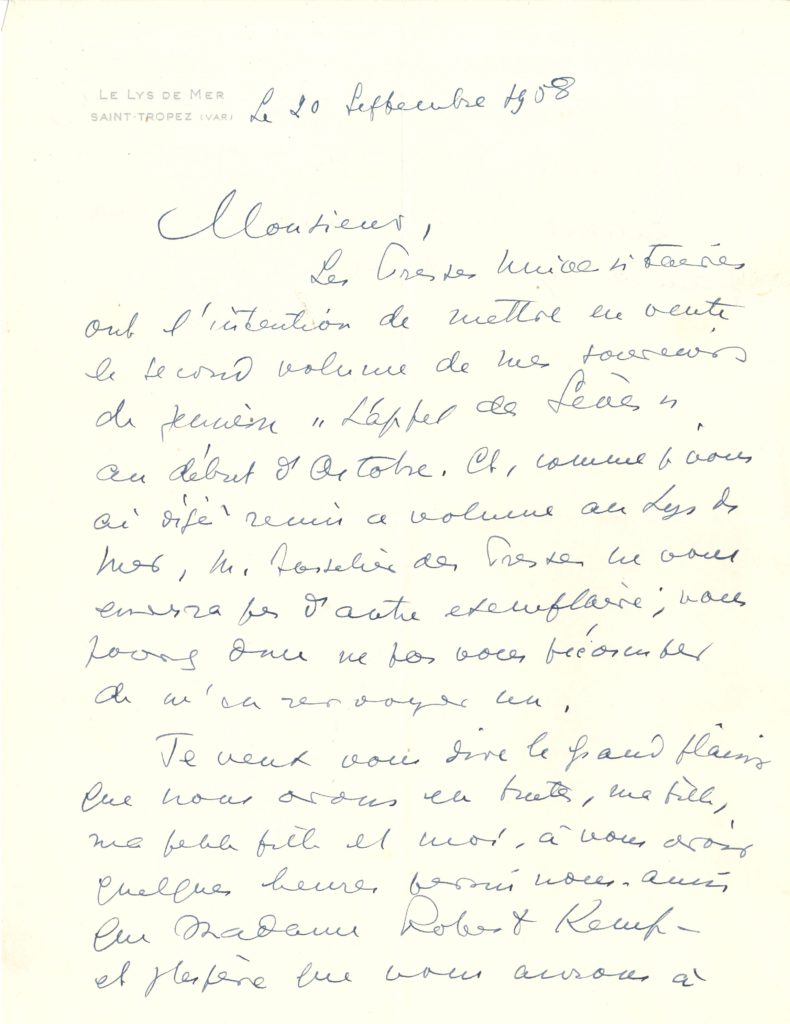 LE LYS DE MER
SAINT-TROPEZ (VAR)
Le 20 Septembre 1958
Monsieur,
Les Presses Universitaires
ont l'intention de mettre en vente
le second volume de mes souvenirs
de jeunesse "L'appel de Sèvres"
au début d'Octobre. Et, comme je vous
ai déjà remis ce volume au Lys de
Mer, M. des Presses ne vous
enverra pas d'autre exemplaire; vous
donc ne pas vous
de m'en renvoyer un.
Je veux vous dire le grand plaisir
que nous avons eu toutes, ma fille,
ma petite fille et moi, à vous avoir
quelques heures parmi nous - ainsi
que Madame Robert Kemp -
et j'espère que nous aurons à